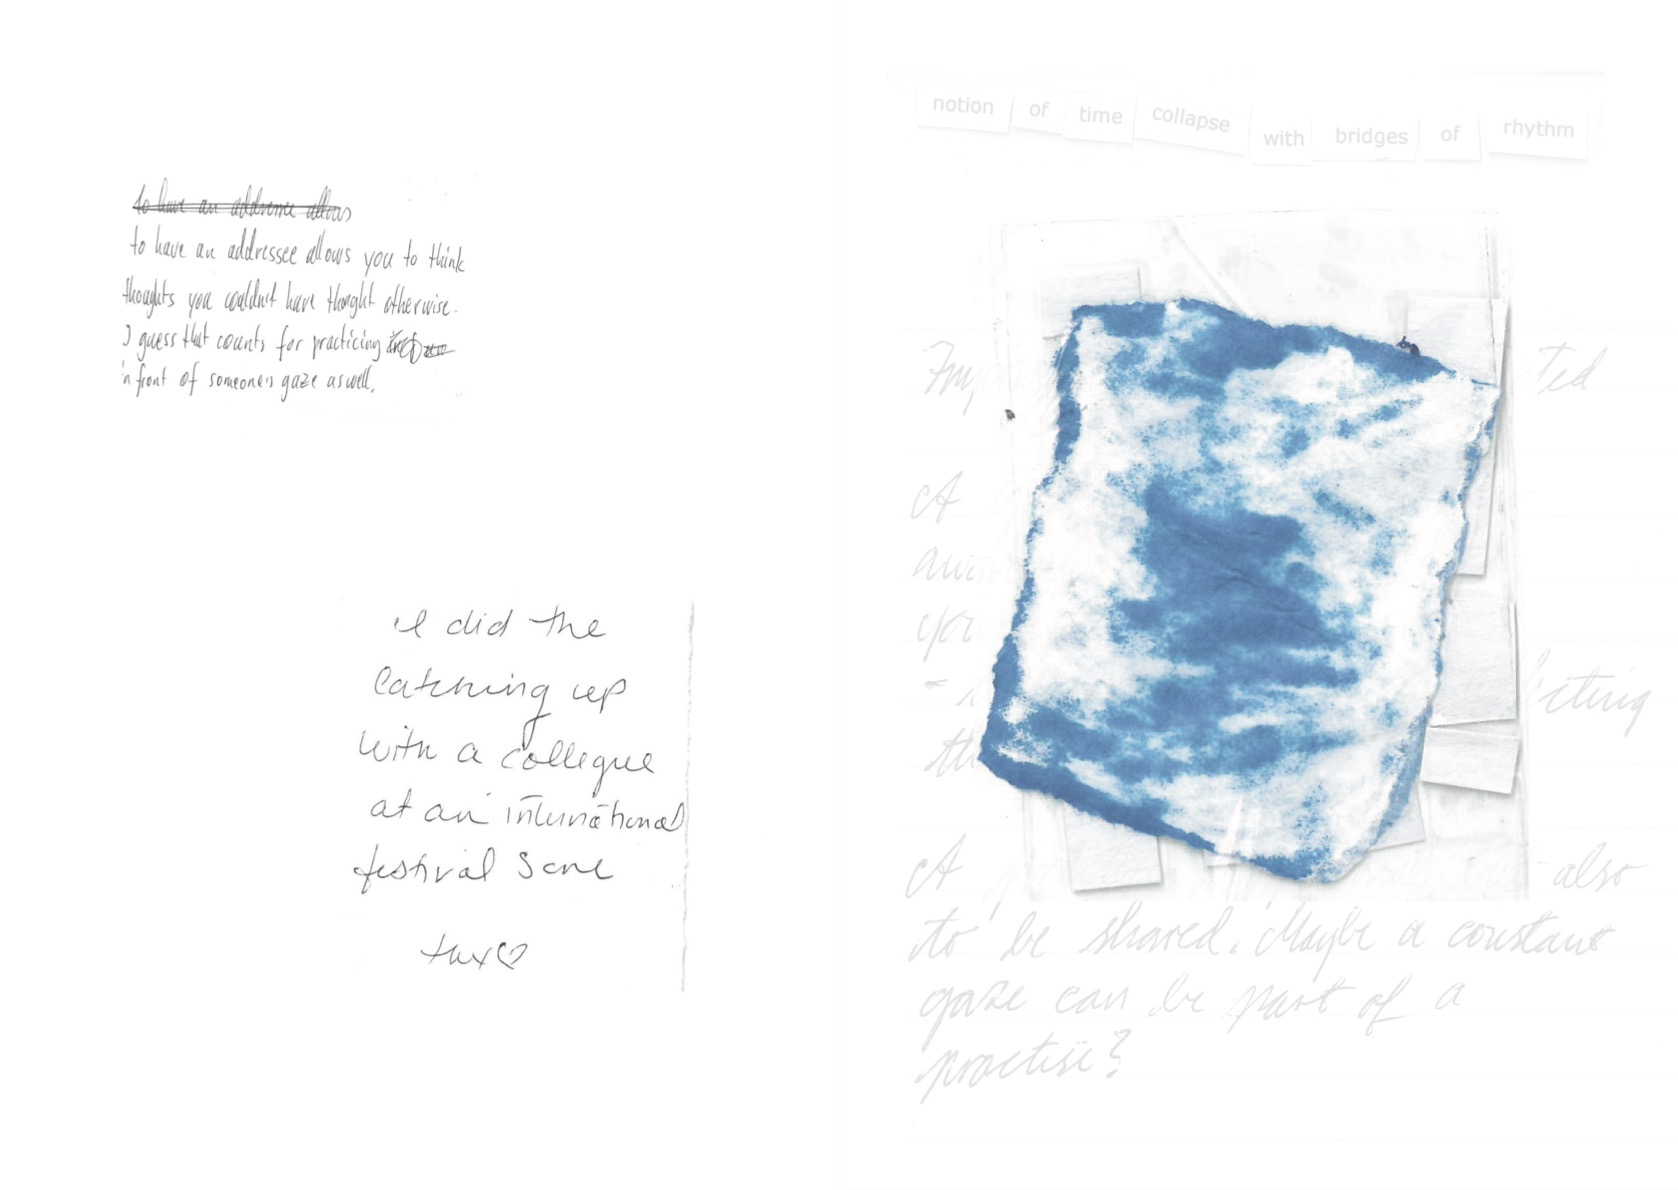 to have an addressee allows you to think
thoughts you couldn't have thought otherwise.
I guess that counts for practicing
in front of someone's gaze as well.
I did the
catching up
with a collegue
at an international
festival
thx♡
notion of time collapse with bridges of rhythm
ted
A
you
cting
A also
to be shared. Maybe a constant
gaze can be part of a
practise?